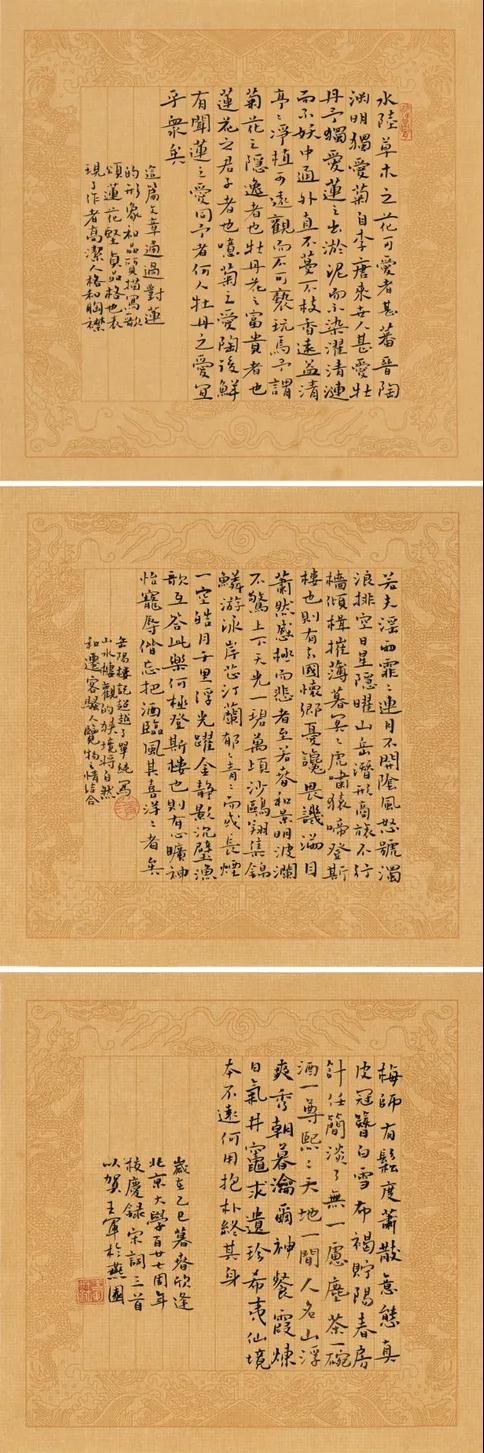 水陸草木之花可愛者甚蕃晉陶
淵明獨愛菊自李唐來世人甚愛牡
丹予獨愛蓮之出淤泥而不染濯清漣
而不妖中通外直不蔓不枝香遠益清
亭〻淨植可遠觀而不可褻玩焉予謂
菊花之隱逸者也牡丹花之富貴者也
蓮花之君子者也噫菊之愛陶後鮮
有聞蓮之愛同予者何人牡丹之愛宜
乎衆矣
這篇文章通過對蓮
的形象和品質描寫歌
頌蓮花堅貞品格也表
現了作者高潔人格和胸襟
若夫淫雨霏〻連月不開陰風怒號濁
浪排空日星隱曜山岳潛形商旅不行
檣傾楫摧薄暮冥〻虎嘯猿啼登斯
樓也則有去國懷鄉憂讒畏譏滿目
蕭然感極而悲者至若春和景明波瀾
不驚上下天光一碧萬頃沙鷗翔集錦
鱗游泳岸芷汀蘭郁〻青〻而或長煙
一空皓月千里浮光躍金靜影沉璧漁
歌互答此樂何極登斯樓也則有心曠神
怡寵辱偕忘把酒臨風其喜洋〻者矣
岳陽樓記超越了單純寫
山水樓觀的狹境將自然
和遷客騷人覽物之情結合
梅師有鬆度蕭散無態真
皮冠簪白雪布褐貯陽春房
計任簡淡了無一慮塵茶一碗
酒一尊熙〻天地一閒人名山浮
爽秀朝暮瀹爾神餐霞煉
日氣井竈求遺珍希夷仙境
本不遠何用抱朴終其身
歲在乙巳暮春欣逢
北京大學百廿七周年
校慶録宋詞三首
以賀王軍於燕園